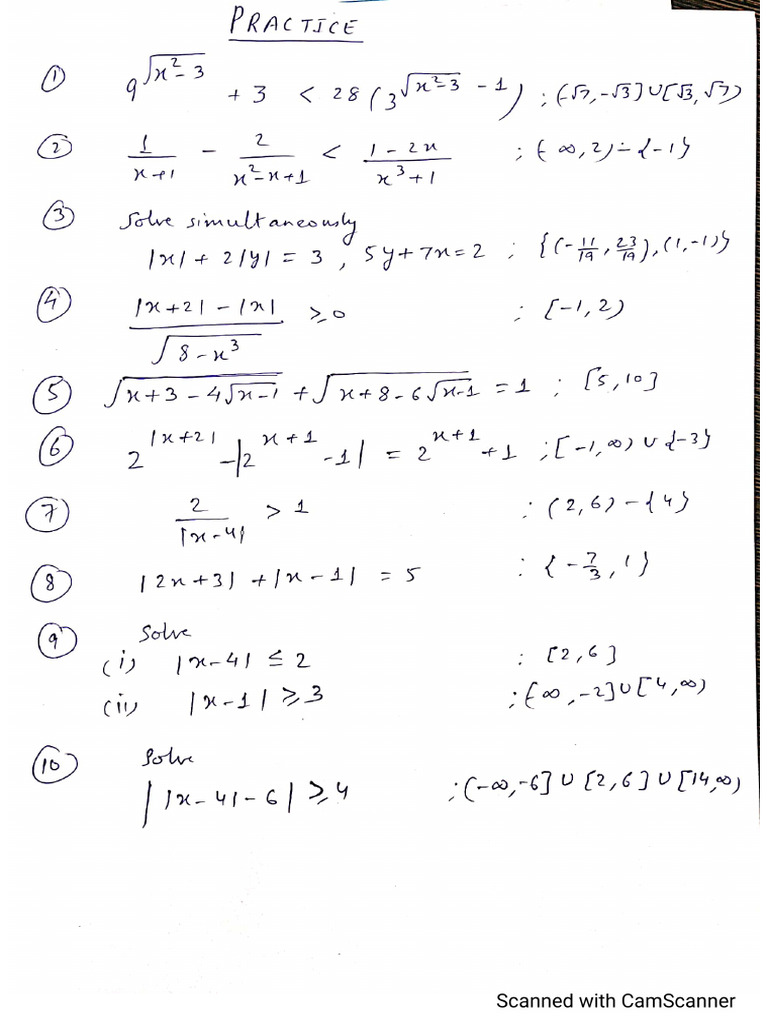 PRACTICE
① 9^{√(x²-3)} + 3 < 28 (3^{√(x²-3)} - 1) ; (-√7, -√3] ∪ [√3, √7)
② 1/(x+1) - 2/(x²-x+1) < (1-2x)/(x³+1) ; (-∞, 2) - {-1}
③ Solve simultaneously
|x| + 2|y| = 3 , 5y + 7x = 2 ; {(-11/19, 23/19), (1, -1)}
④ (|x+2| - |x|)/√(8-x³) ≥ 0 ; [-1, 2)
⑤ √(x+3-4√(x-1)) + √(x+8-6√(x-1)) = 1 ; [5, 10]
⑥ 2^{|x+2|} - |2^{x+1} - 1| = 2^{x+1} + 1 ; [-1, ∞) ∪ {-3}
⑦ 2/|x-4| > 1 : (2, 6) - {4}
⑧ |2x+3| + |x-1| = 5 : {-7/3, 1}
⑨ Solve
(i) |x-4| ≤ 2 : [2, 6]
(ii) |x-1| ≥ 3 ; (-∞, -2] ∪ [4, ∞)
⑩ Solve
||x-4|-6| ≥ 4 ; (-∞, -6] ∪ [2, 6] ∪ [14, ∞)
Scanned with CamScanner